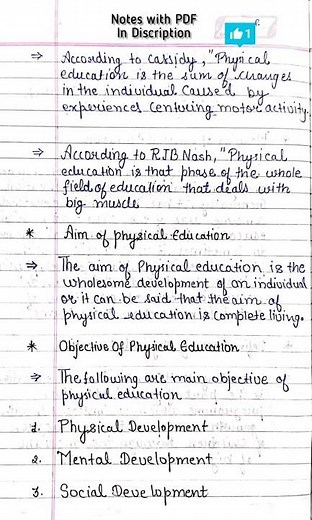 Notes with PDF
In Discription
1
⇒ According to Cassidy, "Physical
education is the sum of changes
in the individual caused by
experiences centring motor activity.
⇒ According to RJB Nash, "Physical
education is that phase of the whole
field of education that deals with
big muscle
* Aim of physical Education
⇒ The aim of Physical education is the
wholesome development of an individual
or it can be said that the aim of
physical education is complete living.
* Objective Of Physical Education
⇒ The following are main objective of
physical education
1. Physical Development
2. Mental Development
3. Social Development